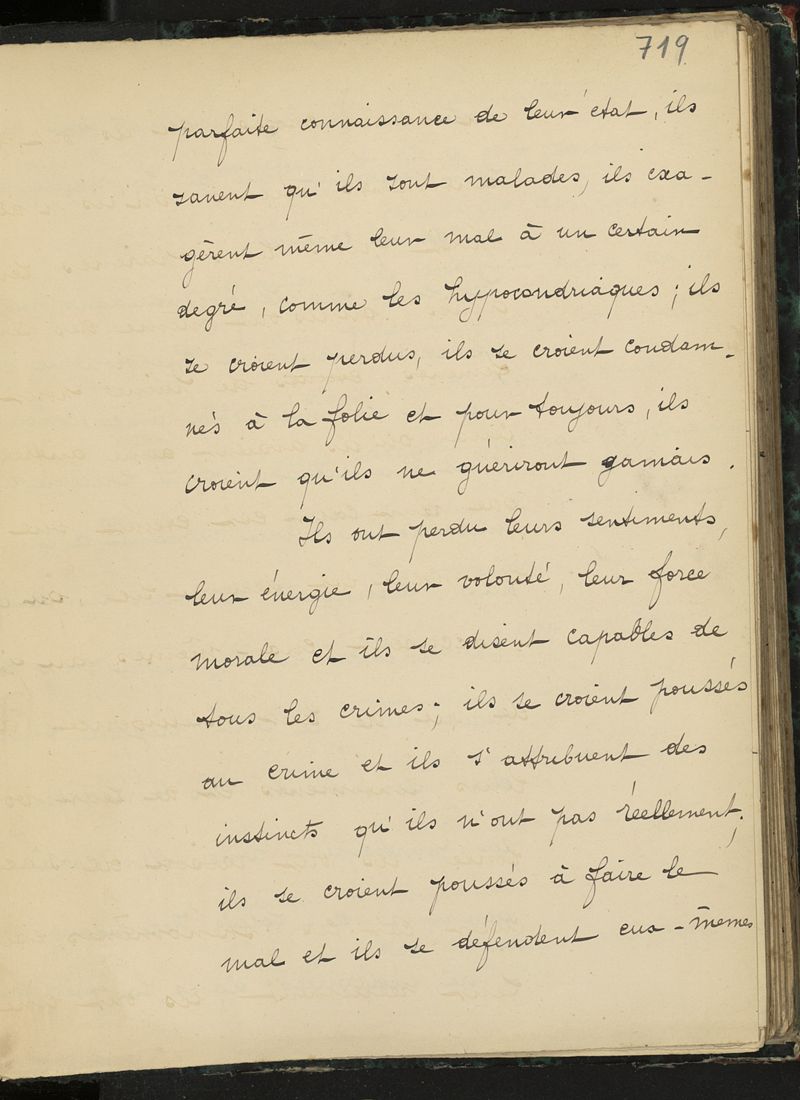 719
parfaite connaissance de leur état, ils
savent qu'ils sont malades, ils exa-
gèrent même leur mal à un certain
degré, comme les hypocondriaques ; ils
se croient perdus, ils se croient condam-
nés à la folie et pour toujours, ils
croient qu'ils ne guériront jamais.
Ils ont perdu leurs sentiments,
leur énergie, leur volonté, leur force
morale et ils se disent capables de
tous les crimes ; ils se croient poussés
au crime et ils s'attribuent des
instincts qu'ils n'ont pas réellement ;
ils se croient poussés à faire le
mal et ils se défendent eux-mêmes